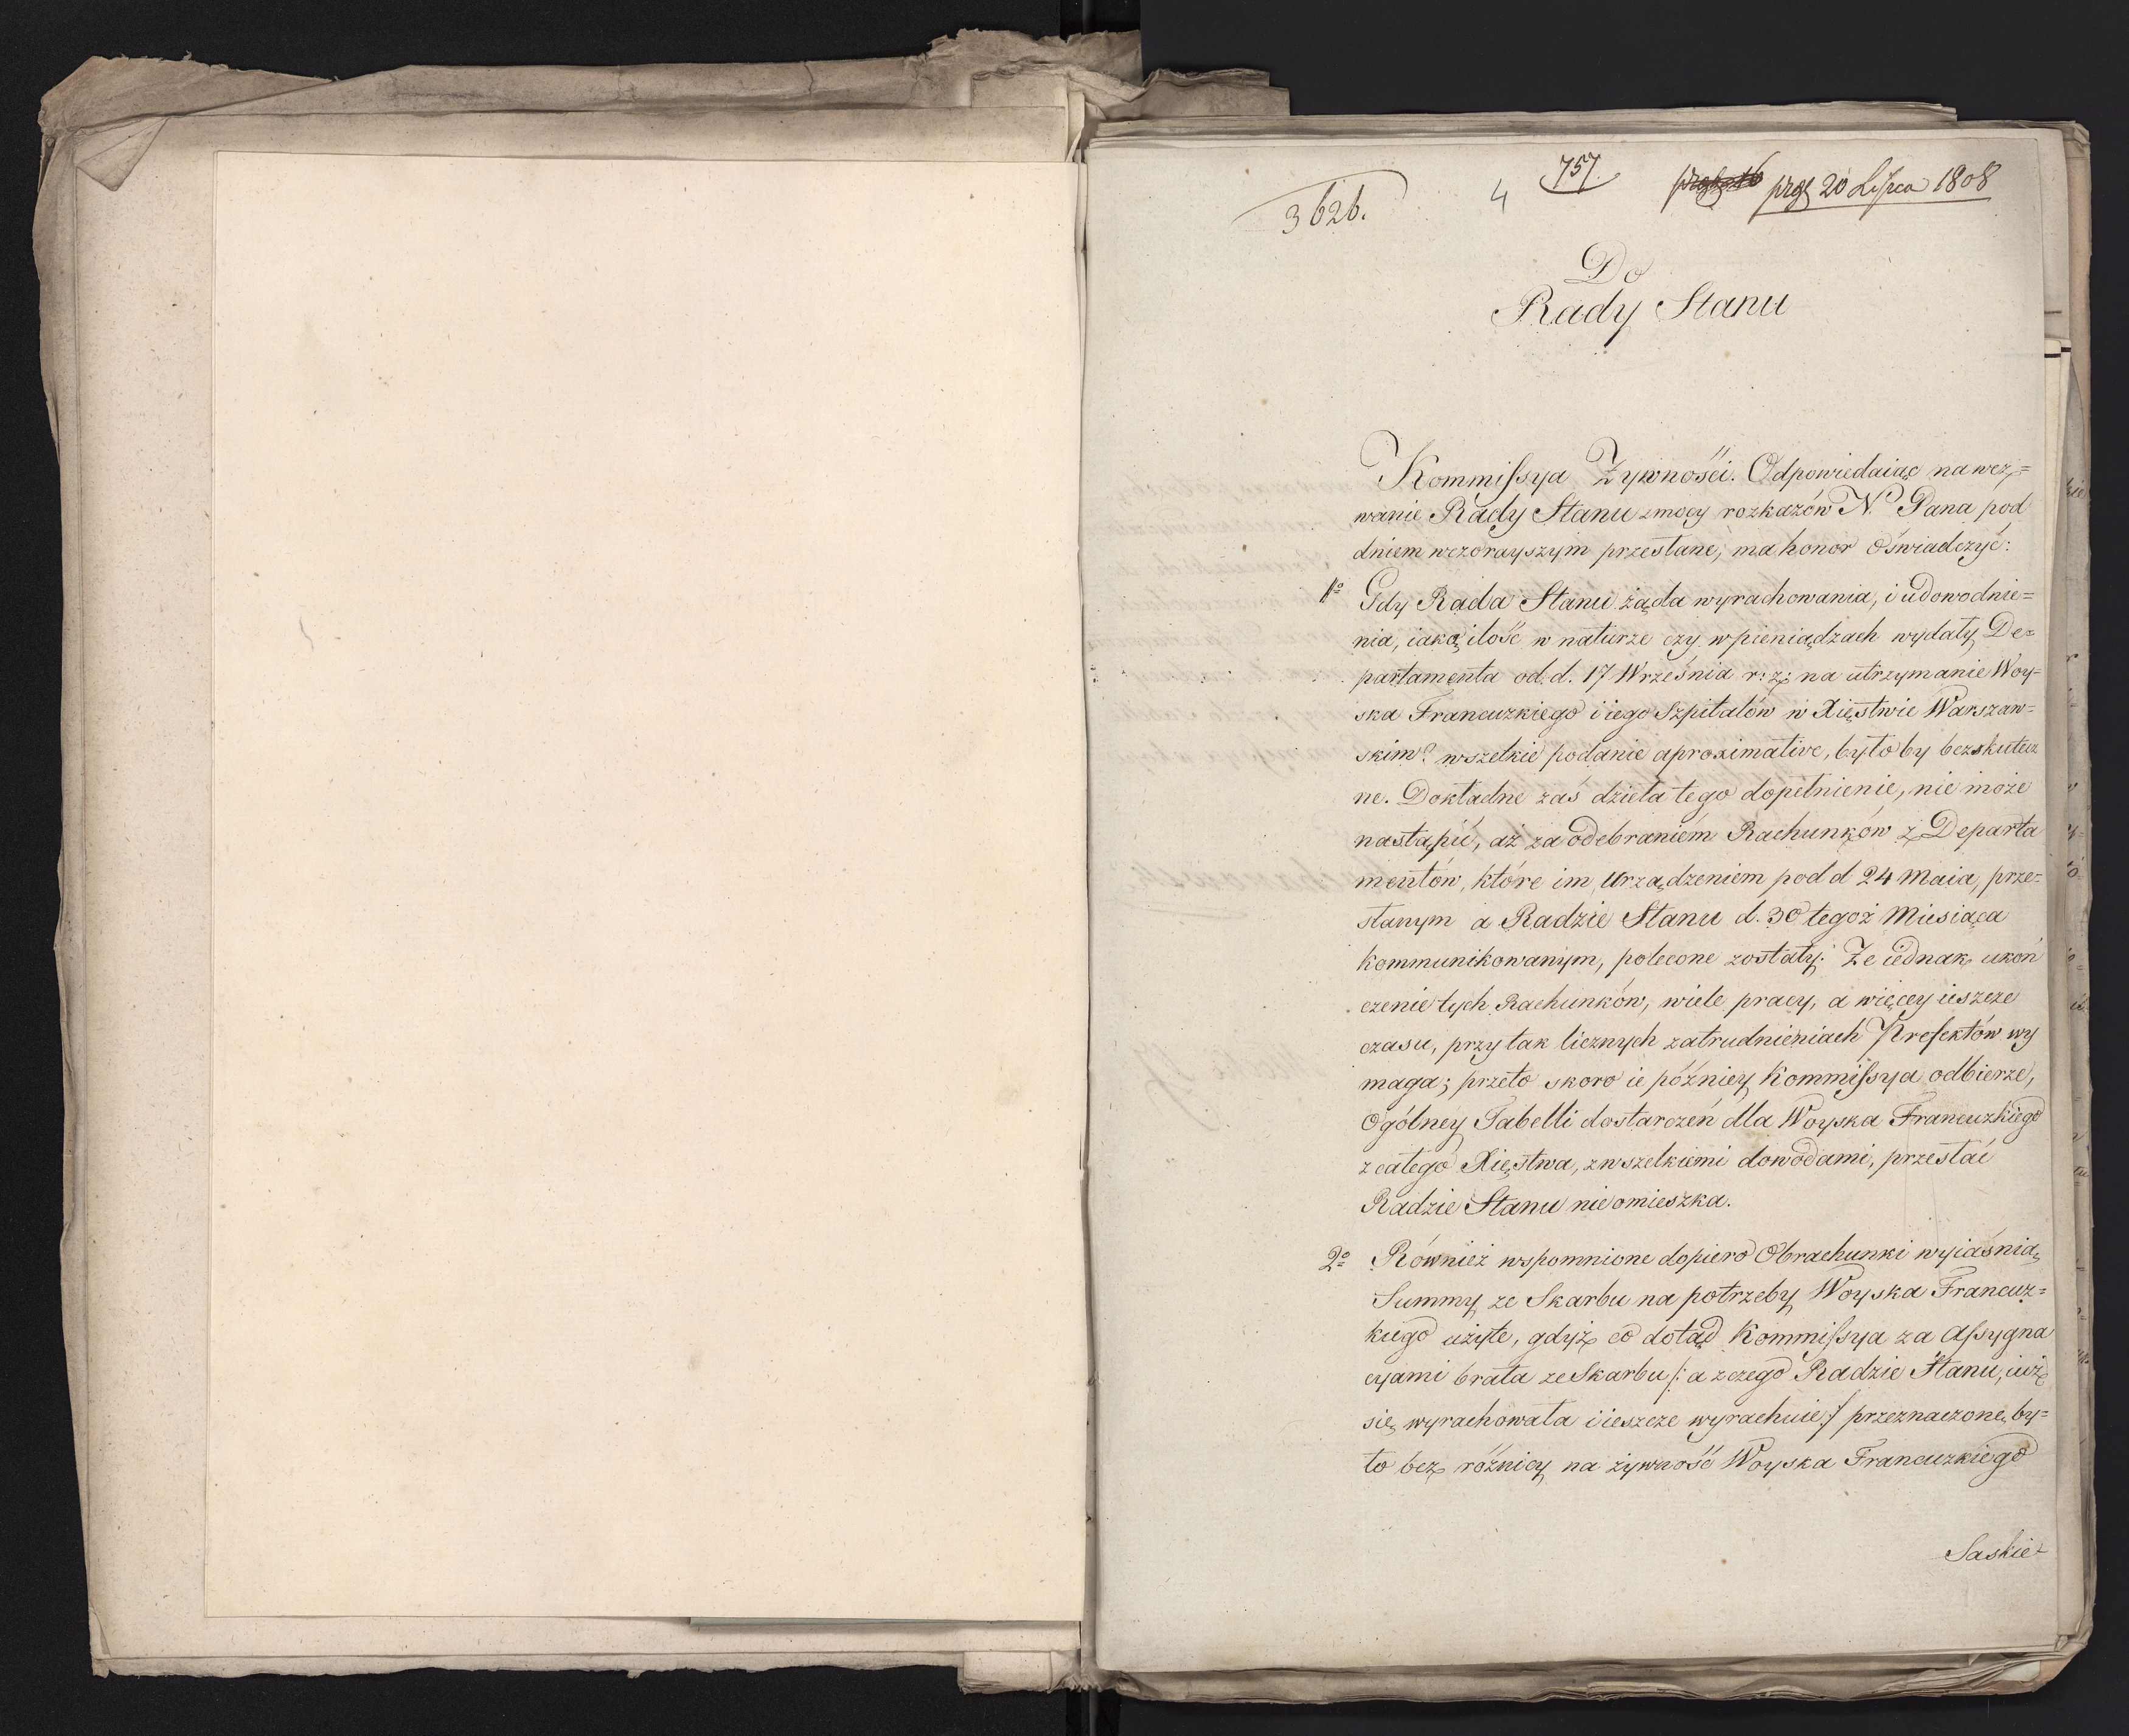 3626.
4
757.
przs 20 Lipca 1808
Do
Rady Stanu
Kommissya Żywnośći. Odpowiedaiąc na wez=
wanie Rady Stanu z mocy rozkazów N. Pana pod
dniem wczorayszym przesłane, ma honor oświadczyć:
1o Gdy Rada Stanu żąda wyrachowania, i udowodnie=
nia, iaką ilość w naturze czy w pieniądzach wydały De=
partamenta od d. 17 Września r: z: na utrzymanie Woy=
ska Francuzkiego i iego Szpitalów w Xięstwie Warszaw=
skim? wszelkie podanie aproximative, byłoby bezskutecz
ne. Dokładne zaś dzieła tego dopełnienie, nie może
nastąpić, aż za odebraniem Rachunków z Departa
mentów, które im Urządzeniem pod d 24 Maia, prze=
słanym a Radzie Stanu d. 30 tegoż Miesiąca
kommunikowanym, polecone zostały. Że iednak ukoń
czenie tych Rachunków, wiele pracy, a więcey ieszcze
czasu, przy tak licznych zatrudnieniach Prefektów wy
maga; przeto skoro ie późniey Kommissya odbierze,
Ogólney Tabelli dostarczeń dla Woyska Francuzkiego
z całego Xięstwa, z wszelkiemi dowodami, przesłać
Radzie Stanu nieomieszka.
2o Również wspomnione dopiero Obrachunki wyiaśnią
Summy ze Skarbu na potrzeby Woyska Francuz=
kiego użyte, gdyż co dotąd Kommissya za Assygna
cyami brała ze Skarbu /: a z czego Radzie Stanu, iuż
się wyrachowała i ieszcze wyrachuie :/ przeznaczone by=
ło bez różnicy na żywność Woyska Francuzkiego
Saskie-